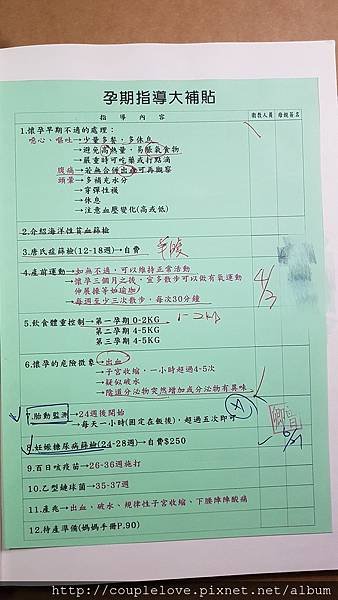 孕期指導大補貼
指 導 內 容
衛教人員
母親簽名
1.懷孕早期不適的處理：
噁心、嘔吐→少量多餐，多休息
→避免高熱量，易脹氣食物
→嚴重時可吃藥或打點滴
腹痛→若無合併出血可再觀察
頭暈→多補充水分
→穿彈性襪
→休息
→注意血壓變化(高或低)
2.介紹海洋性貧血篩檢
3.唐氏症篩檢(12-18週)→自費
4.產前運動→如無不適，可以維持正常活動
→懷孕三個月之後，宜多散步可以做有氧運動
伸展操等如瑜珈
→每週至少三次散步，每次30分鐘
4/3
5.飲食體重控制→第一孕期 0-2KG
1-2KG
第二孕期 4-5KG
第三孕期 4-5KG
6.懷孕的危險徵象→出血
→子宮收縮，一小時超過4-5次
→疑似破水
→陰道分泌物突然增加或分泌物有異味
7.胎動監測→24週後開始
→每天一小時(固定在飯後)，超過五次即可
8.妊娠糖尿病篩檢(24-28週)→自費$250
9.百日咳疫苗→26-36週施打
10.乙型鏈球菌→35-37週
11.產兆→出血、破水、規律性子宮收縮、下腰陣陣酸痛
12.待產準備(媽媽手冊P.90)
http://couplelove.pixnet.net/album